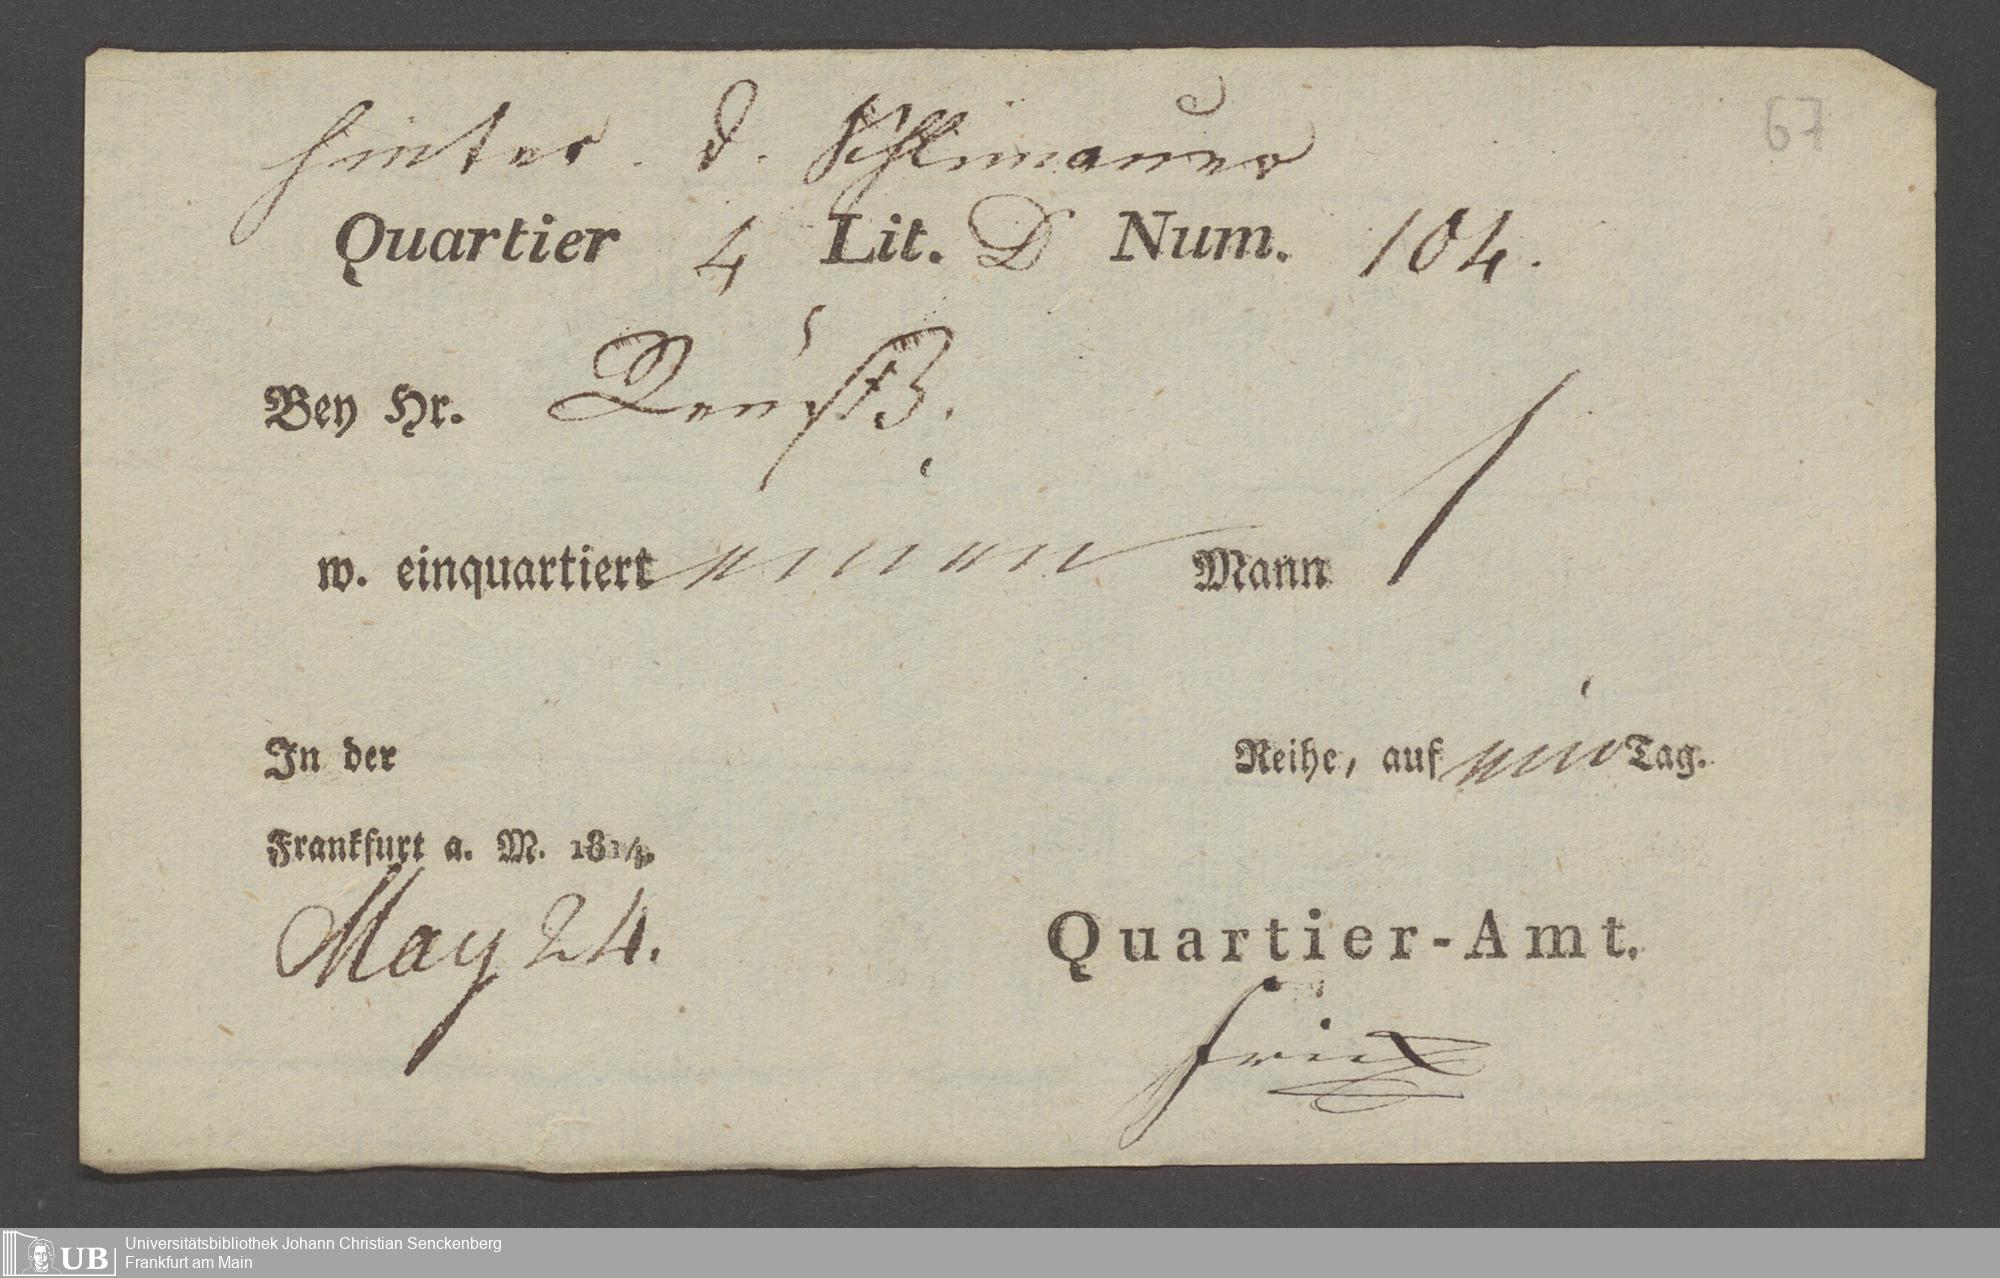 67
hinter. d. Schlimauer
Quartier 4 Lit. D Num. 104.
Bey Hr. Reuß.
w. einquartiert einen Mann 1
In der Reihe, auf ein Tag.
Frankfurt a. M. 1814.
May 24.
Quartier-Amt.
UB Universitätsbibliothek Johann Christian Senckenberg
Frankfurt am Main